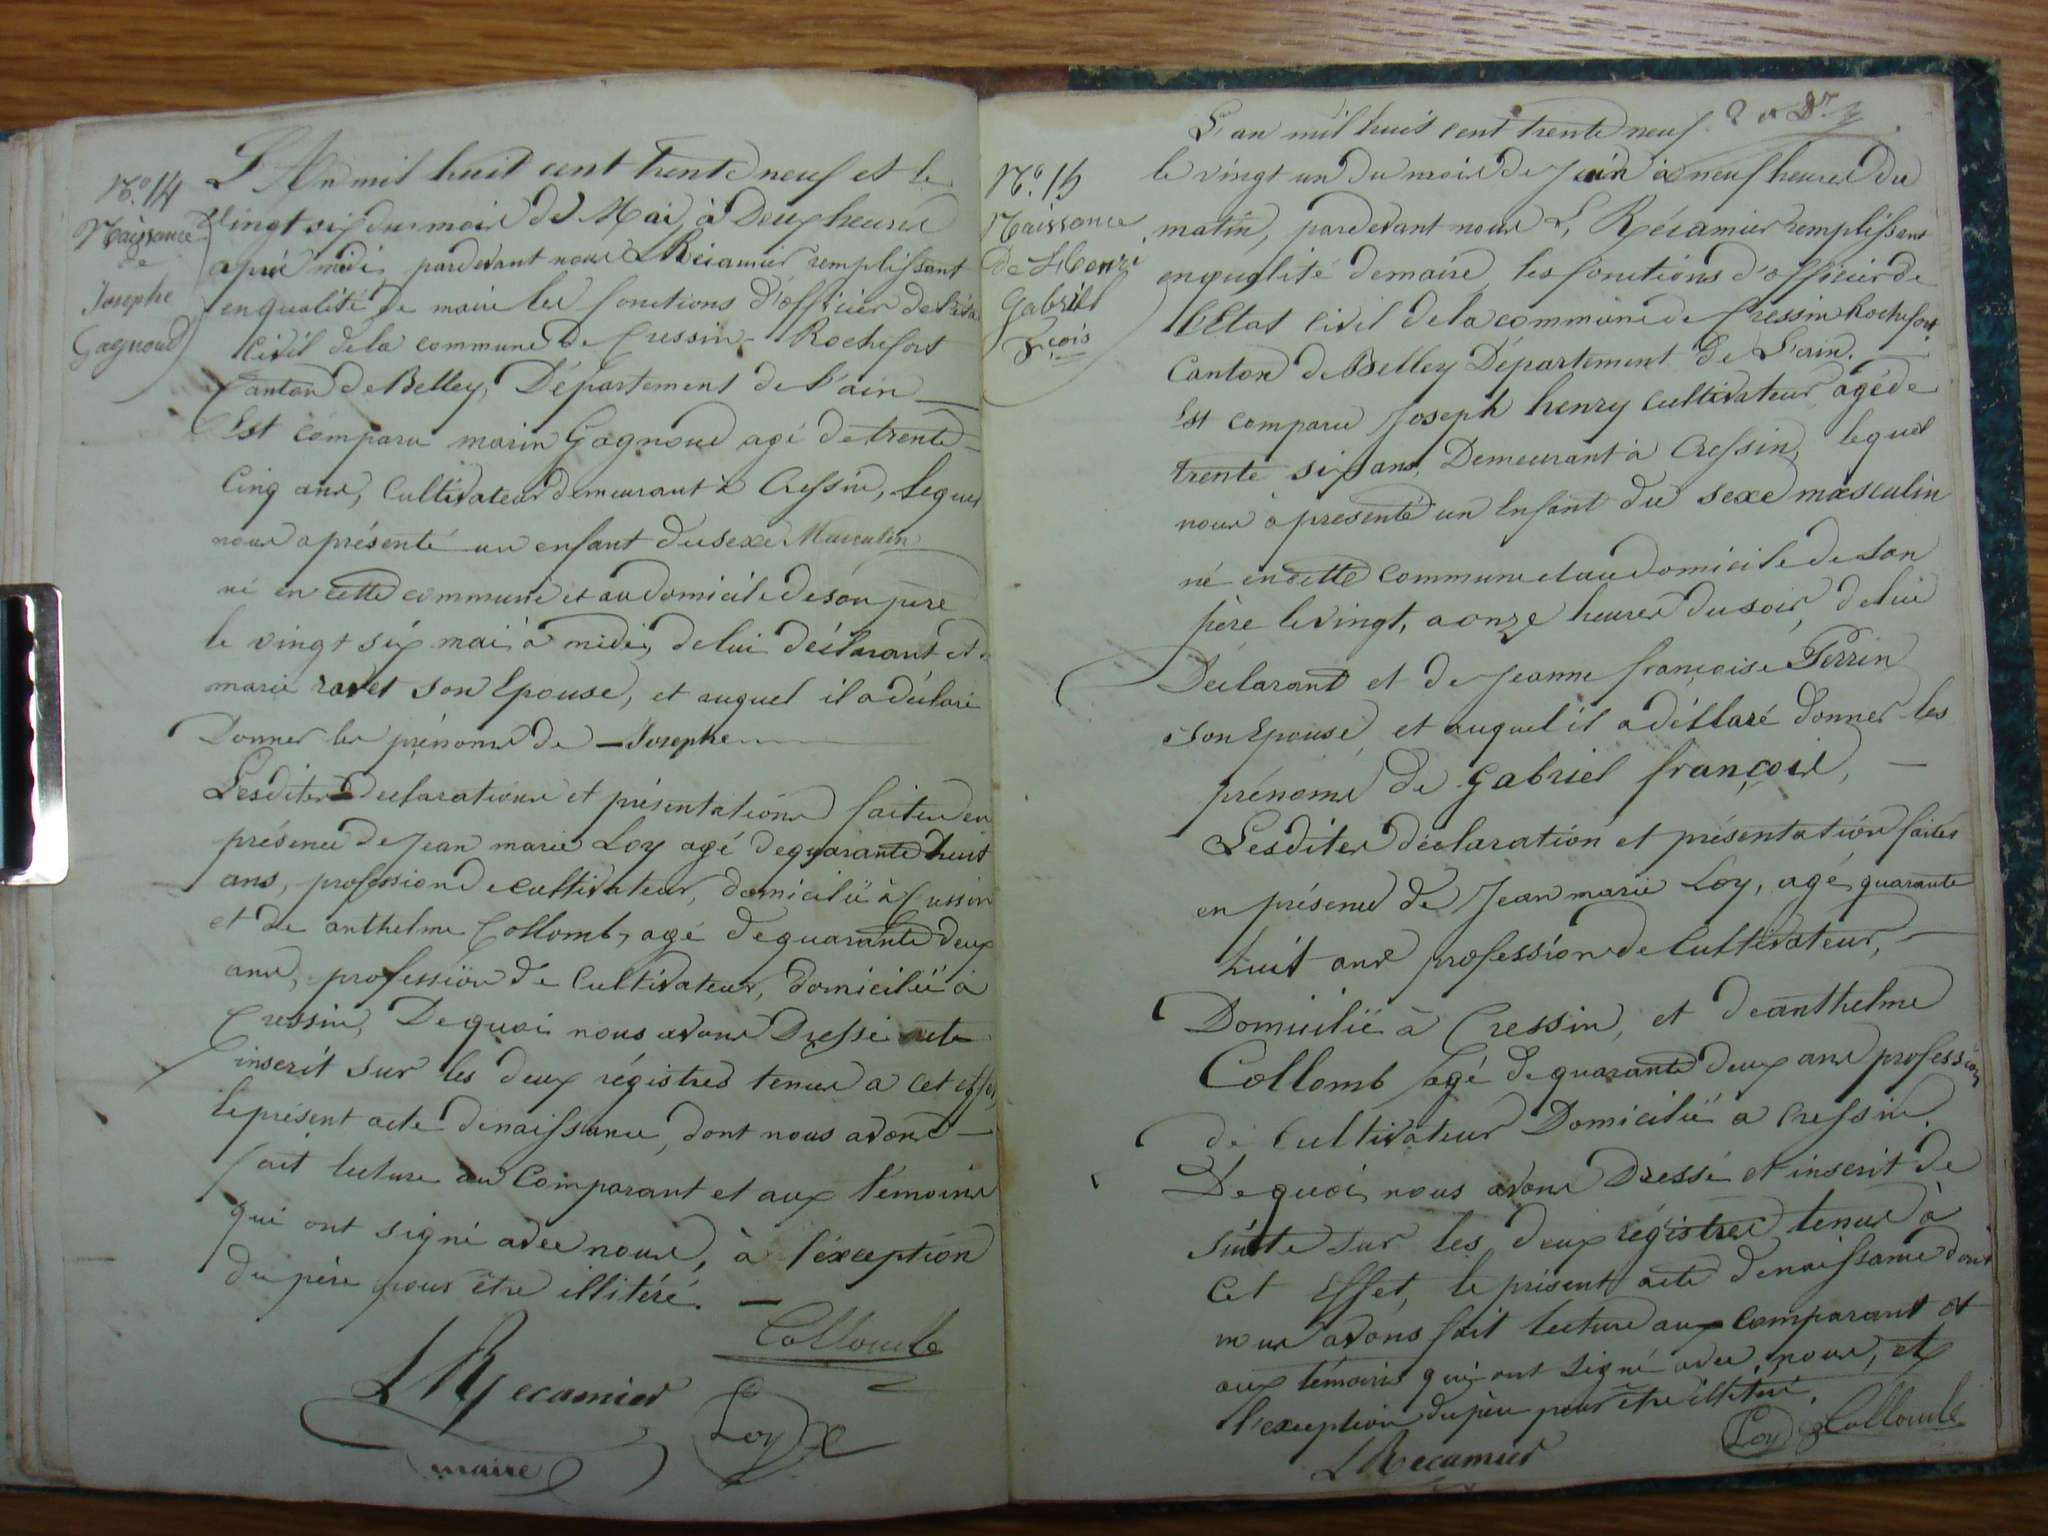 N.o 14
Naissance
de
Josephe
Gagnoud
L'An mil huit cent trente neuf et le
vingt six du mois de Mai, à Deux heures
après midi, pardevant nous L Récamier remplissant
en qualité de maire les fonctions d'officier de l'état
Civil de la commune de Cressin-Rochefort
Canton de Belley, Département de l'ain
Est comparu marin Gagnoud agé de trente
Cinq ans, Cultivateur demeurant à Cressin, Lequel
nous a présenté un enfant du sexe Masculin
né en cette commune et au domicile de son père
le vingt six mai à midi, de lui déclarant et
marie ravet son Epouse, et auquel il a déclaré
Donner les prénoms de - Josephe
Lesdites declarations et présentations faites en
présence de Jean marie Loy agé de quarante huit
ans, profession de cultivateur, domicilié à Cressin
et de anthelme Collomb, agé de quarante deux
ans, profession de Cultivateur, domicilié à
Cressin, De quoi nous avons Dressé acte
inscrit sur les deux régistres tenus a cet effet,
le présent acte de naissance, dont nous avons
fait lecture au Comparant et aux témoins
qui ont signé avec nous, à l'éxception
du père pour être illitéré.
Collomb
L Récamier
Loy
maire
N.o 15
Naissance
de henri
Gabriel
fçois
L'an mil huit cent trente neuf
le vingt un du mois de Juin à neuf heures du
matin, pardevant nous L, Récamier remplissant
en qualité de maire les fonctions d'officier de
l'Etat Civil de la commune de Cressin Rochefort
Canton de Belley Département de L'ain.
Est comparu Joseph henry cultivateur, agé de
trente six ans, Demeurant à Cressin, lequel
nous a presenté un Enfant du sexe masculin
né en cette commune et au domicile de son
père le vingt, a onze heures du soir, de lui
Déclarant et de Jeanne françoise Perrin
son Epouse, et auquel il a déclaré donner les
prénoms de Gabriel françois,
Lesdites déclaration et présentation faites
en présence de Jean marie Loy, agé quarante
huit ans profession de Cultivateur,
Domicilié à Cressin, et de anthelme
Collomb agé de quarante deux ans profession
de Cultivateur Domicilié a Cressin.
De quoi nous avons Dressé et inscrit de
suite sur les deux régistres tenus à
cet Effet, le présent acte de naissance dont
nous avons fait lecture aux comparant et
aux témoins qui ont signé avec nous, et
l'exception du père pour être illitéré.
Loy Collomb
L Récamier